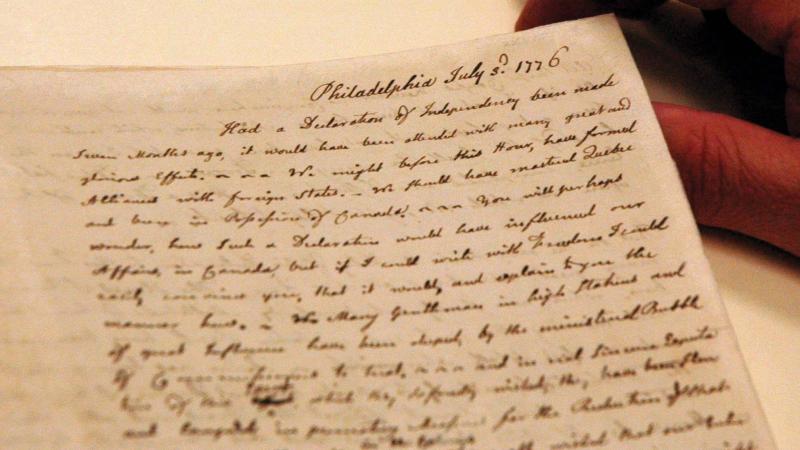 Philadelphia July 3.d 1776
Had a Declaration of Independency been made
seven Months ago, it would have been attended with many great and
glorious Effects. We might before this Hour, have formed
Alliances with foreign States. – We should have mastered Quebec
and been in Possession of Canada. You will perhaps
wonder, how such a Declaration would have influenced our
Affairs, in Canada, but if I could write with Freedom I could
easily convince you, that it would, and explain to you the
manner how. – Many Gentlemen in high Stations and
of great Influence have been duped, by the ministerial Bubble
of Commissioners to treat. and in real, sincere Expecta
tion of this which they so fondly wished, they have been slow
and languid, in promoting Measures for the Reduction of that